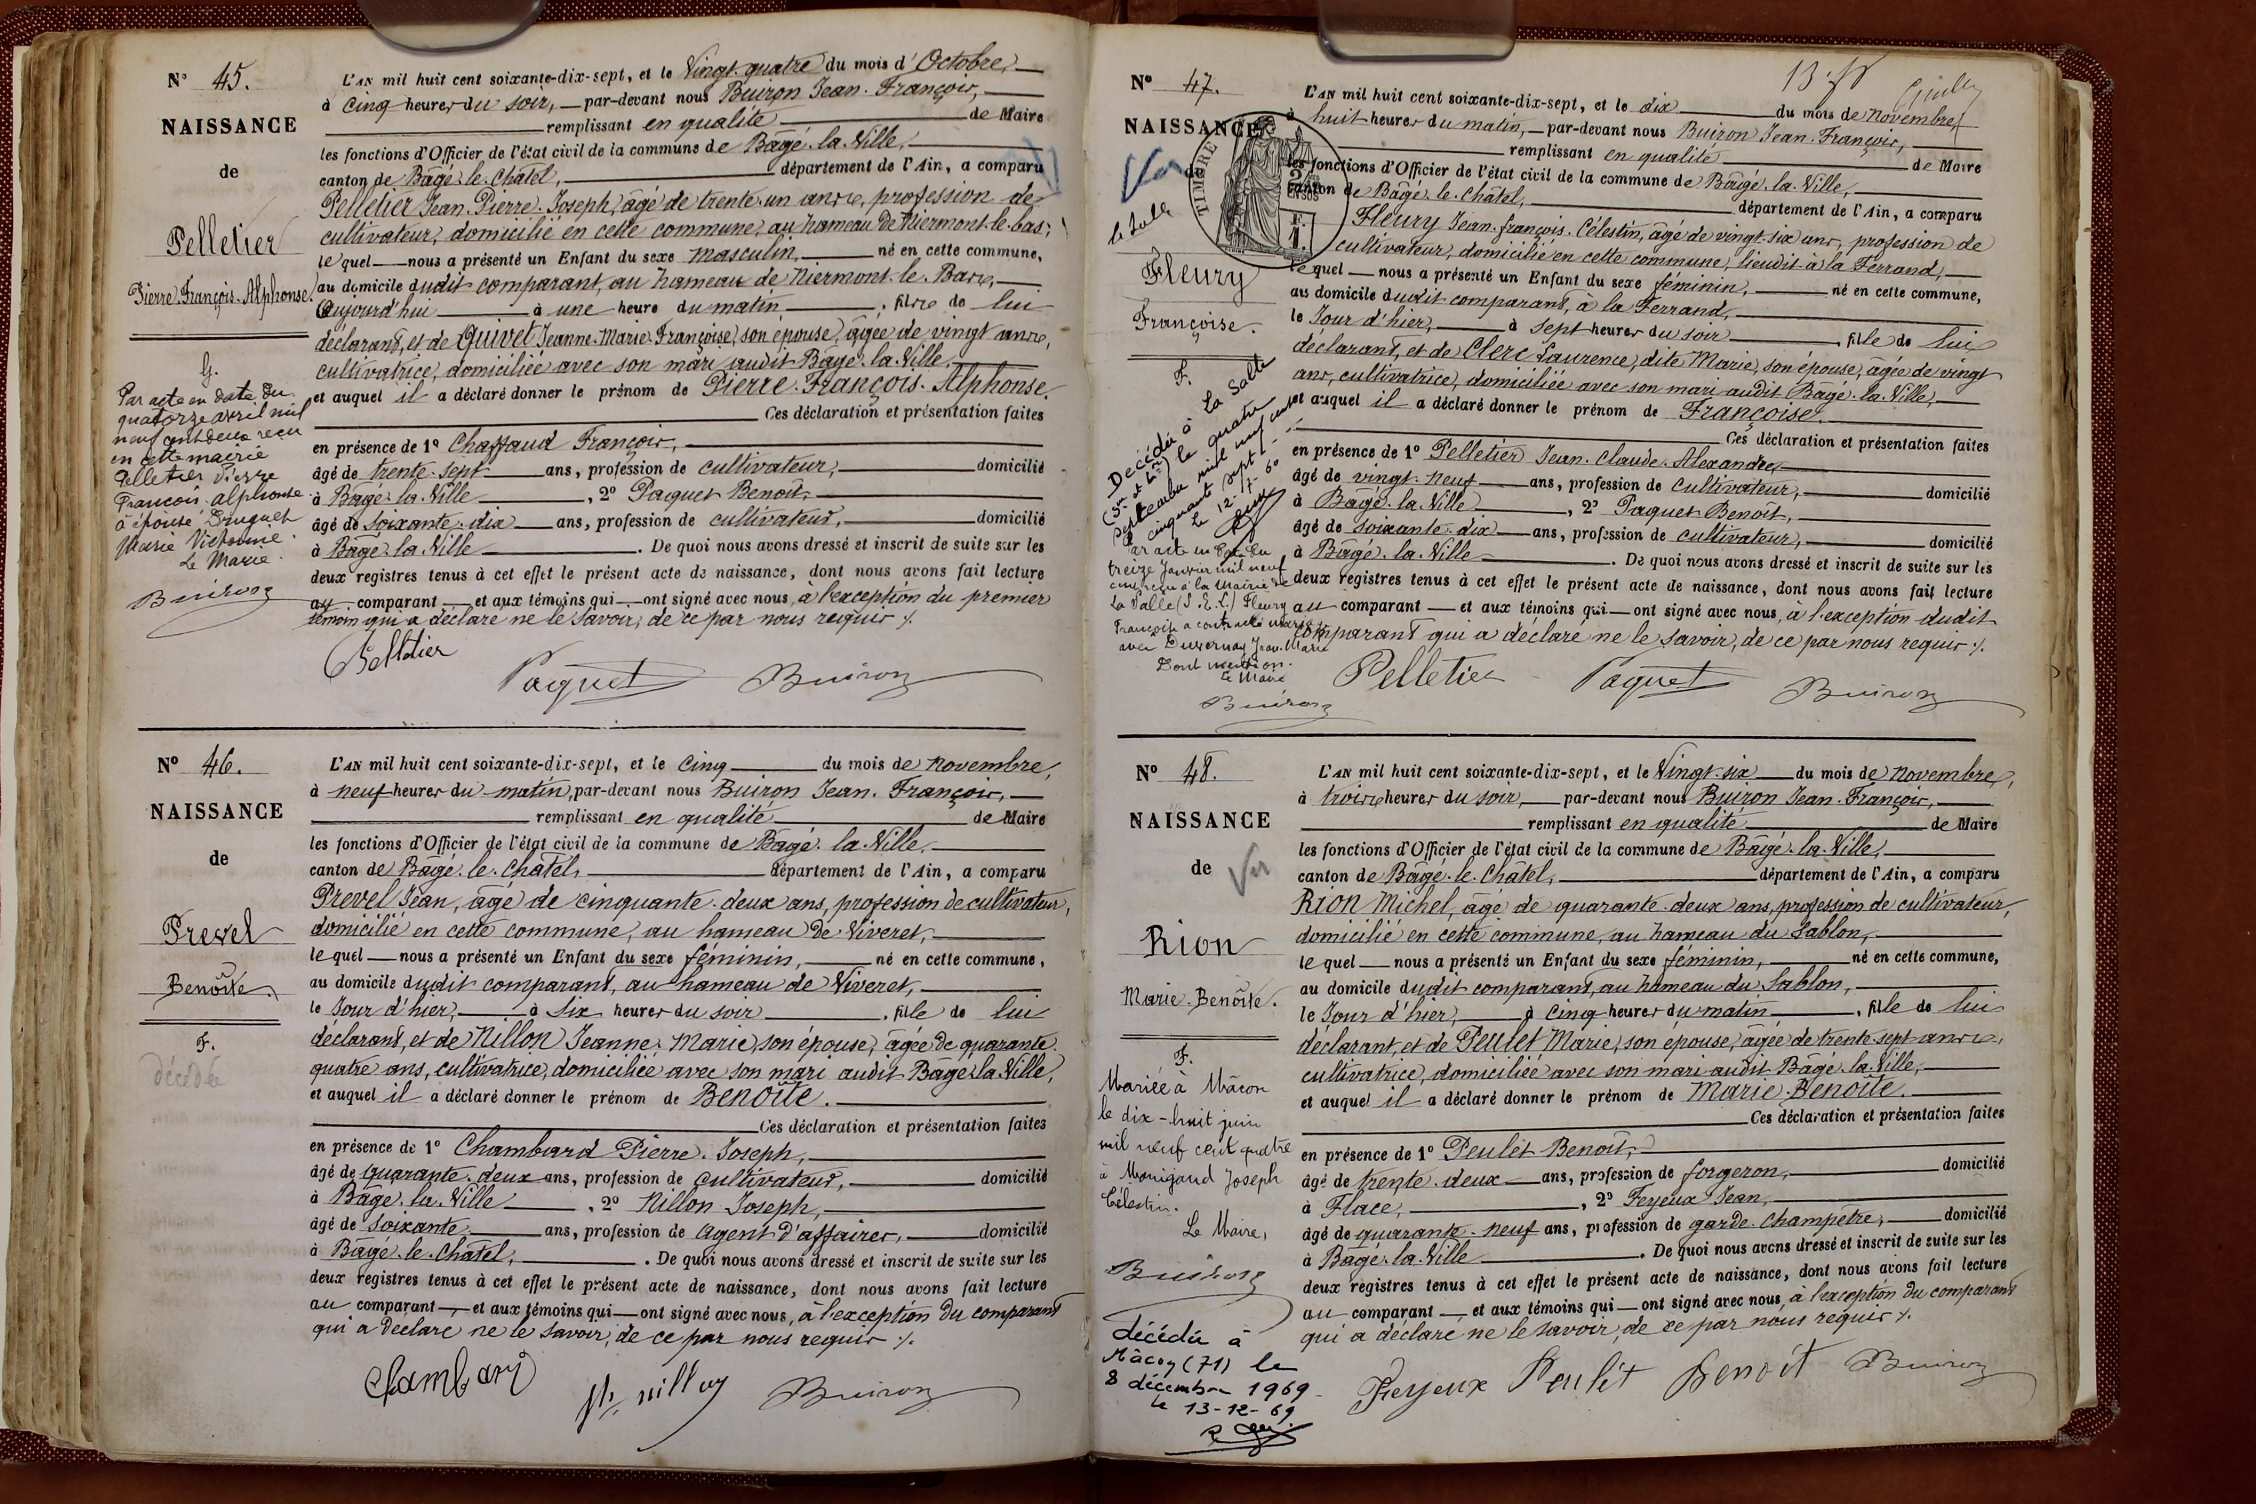 N° 45.
NAISSANCE
de
Pelletier
Pierre-François-Alphonse.
G.
Par acte en date du
quatorze avril mil
neuf cent deux reçu
en cette mairie
Pelletier Pierre
François-Alphonse
a épousé
Marie Victorine.
Le Maire
Buiron
L'AN mil huit cent soixante-dix-sept, et le Vingt-quatre du mois d'Octobre,
à cinq heures du soir, par-devant nous Buiron Jean-François,
remplissant en qualité de Maire
les fonctions d'Officier de l'état civil de la commune de Bâgé-la-Ville,
canton de Bâgé-le-Châtel, département de l'Ain, a comparu
Pelletier Jean-Pierre-Joseph, âgé de trente-un ans, profession de
cultivateur, domicilié en cette commune, au hameau de Niermont-le-bas;
lequel nous a présenté un Enfant du sexe masculin, né en cette commune,
au domicile dudit comparant, au hameau de Niermont-le-Bas,
Aujourd'hui à une heure du matin, fils de lui
déclarant, et de Quivet Jeanne-Marie-Françoise, son épouse, âgée de vingt ans,
cultivatrice, domiciliée avec son mari audit Bâgé-la-Ville,
et auquel il a déclaré donner le prénom de Pierre-François-Alphonse.
Ces déclaration et présentation faites
en présence de 1° Chaffaud François,
âgé de trente-sept ans, profession de cultivateur, domicilié
à Bâgé-la-Ville, 2° Paquet Benoit,
âgé de soixante-dix ans, profession de cultivateur, domicilié
à Bâgé-la-Ville. De quoi nous avons dressé et inscrit de suite sur les
deux registres tenus à cet effet le présent acte de naissance, dont nous avons fait lecture
au comparant et aux témoins qui ont signé avec nous, à l'exception du premier
témoin qui a déclaré ne le savoir, de ce par nous requis ./.
Pelletier Paquet Buiron
N° 46.
NAISSANCE
de
Prevel
Benoîte.
F.
décédée
L'AN mil huit cent soixante-dix-sept, et le cinq du mois de novembre,
à neuf heures du matin, par-devant nous Buiron Jean-François,
remplissant en qualité de Maire
les fonctions d'Officier de l'état civil de la commune de Bâgé-la-Ville,
canton de Bâgé-le-Châtel, département de l'Ain, a comparu
Prevel Jean, âgé de cinquante-deux ans, profession de cultivateur,
domicilié en cette commune, au hameau de Viveret,
lequel nous a présenté un Enfant du sexe féminin, né en cette commune,
au domicile dudit comparant, au hameau de Viveret,
le Jour d'hier, à six heures du soir, fille de lui
déclarant, et de Nillon Jeanne-Marie, son épouse, âgée de quarante-
quatre ans, cultivatrice, domiciliée avec son mari audit Bâgé-la-Ville,
et auquel il a déclaré donner le prénom de Benoîte.
Ces déclaration et présentation faites
en présence de 1° Chambard Pierre-Joseph,
âgé de quarante-deux ans, profession de cultivateur, domicilié
à Bâgé-la-Ville, 2° Nillon Joseph,
âgé de soixante ans, profession de agent d'affaires, domicilié
à Bâgé-le-Châtel, . De quoi nous avons dressé et inscrit de suite sur les
deux registres tenus à cet effet le présent acte de naissance, dont nous avons fait lecture
au comparant et aux témoins qui ont signé avec nous, à l'exception du comparant
qui a déclaré ne le savoir, de ce par nous requis ./.
Chambard Jh nillon Buiron
N° 47.
NAISSANCE
de
TIMBRE
Fleury
Françoise.
F.
Décédée à La Salle
(S. et L.) le quatre
septembre mil neuf cent
cinquante sept
le 12-
Par acte en date du
treize janvier mil neuf
cent reçu à la mairie de
La Salle (S. & L.) Fleury
Françoise a contracté mariage
avec Duvernay Jean-Marie
Dont mention.
Le Maire
Buiron
L'AN mil huit cent soixante-dix-sept, et le dix du mois de novembre,
à huit heures du matin, par-devant nous Buiron Jean-François,
remplissant en qualité de Maire
les fonctions d'Officier de l'état civil de la commune de Bâgé-la-Ville,
canton de Bâgé-le-Châtel, département de l'Ain, a comparu
Fleury Jean-François-Célestin, âgé de vingt-six ans, profession de
cultivateur, domicilié en cette commune, lieudit à la Ferrand,
lequel nous a présenté un Enfant du sexe féminin, né en cette commune,
au domicile dudit comparant, à la Ferrand,
le Jour d'hier, à sept heures du soir, fille de lui
déclarant, et de Clerc Laurence, dite Marie, son épouse, âgée de vingt
ans, cultivatrice, domiciliée avec son mari audit Bâgé-la-Ville,
et auquel il a déclaré donner le prénom de Françoise.
Ces déclaration et présentation faites
en présence de 1° Pelletier Jean-Claude-Alexandre,
âgé de vingt-neuf ans, profession de cultivateur, domicilié
à Bâgé-la-Ville, 2° Paquet Benoit,
âgé de soixante-dix ans, profession de cultivateur, domicilié
à Bâgé-la-Ville. De quoi nous avons dressé et inscrit de suite sur les
deux registres tenus à cet effet le présent acte de naissance, dont nous avons fait lecture
au comparant et aux témoins qui ont signé avec nous, à l'exception dudit
comparant qui a déclaré ne le savoir, de ce par nous requis ./.
Pelletier Paquet Buiron
N° 48.
NAISSANCE
de
Rion
Marie-Benoîte.
F.
Mariée à Mâcon
le dix-huit juin
mil neuf cent quatre
à Monigaud Joseph
Célestin.
Le Maire,
Buiron
décédée à
Mâcon (71) le
8 décembre 1969
le 13-12-69
L'AN mil huit cent soixante-dix-sept, et le Vingt-six du mois de novembre,
à trois heures du soir, par-devant nous Buiron Jean-François,
remplissant en qualité de Maire
les fonctions d'Officier de l'état civil de la commune de Bâgé-la-Ville,
canton de Bâgé-le-Châtel, département de l'Ain, a comparu
Rion Michel, âgé de quarante-deux ans, profession de cultivateur,
domicilié en cette commune, au hameau du Sablon,
lequel nous a présenté un Enfant du sexe féminin, né en cette commune,
au domicile dudit comparant, au hameau du Sablon,
le Jour d'hier, à cinq heures du matin, fille de lui
déclarant, et de Peulet Marie, son épouse, âgée de trente-sept ans,
cultivatrice, domiciliée avec son mari audit Bâgé-la-Ville,
et auquel il a déclaré donner le prénom de Marie-Benoîte.
Ces déclaration et présentation faites
en présence de 1° Peulet Benoit,
âgé de trente-deux ans, profession de forgeron, domicilié
à Flacé, 2° Feyeux Jean,
âgé de quarante-neuf ans, profession de garde-champêtre, domicilié
à Bâgé-la-Ville. De quoi nous avons dressé et inscrit de suite sur les
deux registres tenus à cet effet le présent acte de naissance, dont nous avons fait lecture
au comparant et aux témoins qui ont signé avec nous, à l'exception du comparant
qui a déclaré ne le savoir, de ce par nous requis ./.
Feyeux Peulet Benoit Buiron